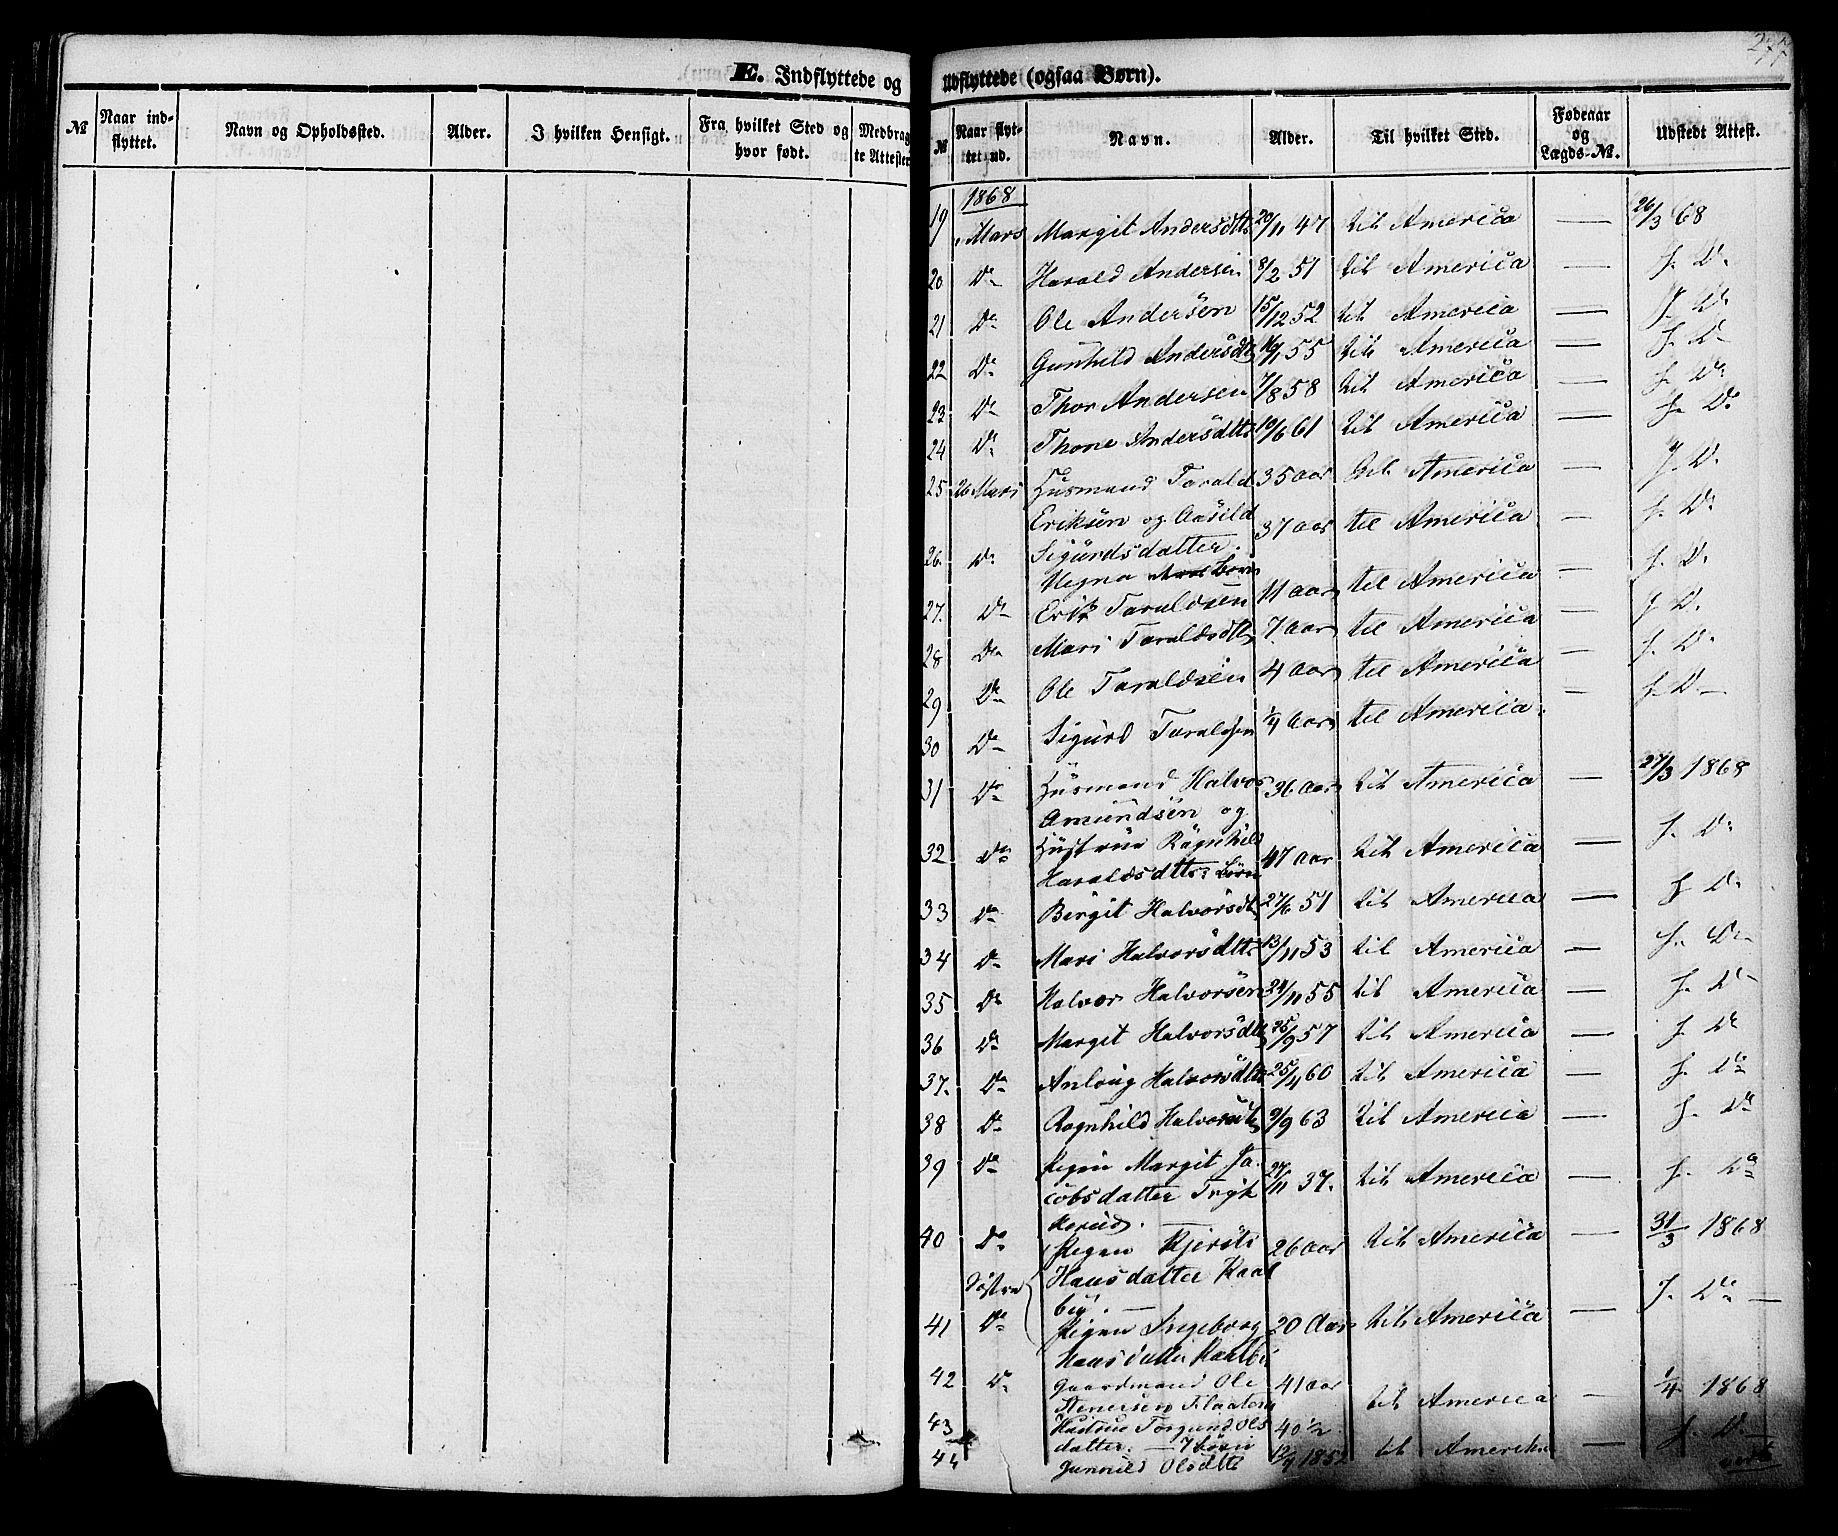 277
E. Indflyttede og
Udflyttede (ogsaa Børn).
№
Naar ind-
flyttet.
Navn og Opholdssted.
Alder.
I hvilken Hensigt.
Fra hvilket Sted og
hvor født.
Medbrag
te Attester
№
Naar flyt-
tet ud.
Navn.
Alder.
Til hvilket Sted.
Fødeaar
og
Lægds-№.
Udstedt Attest.
1868
19 Mars Margit Andersdtt 20/11 47 til America — 26/3 68
20 Do Harald Andersen 8/2 51 til America — f. Do
21 Do Ole Andersön 15/12 52 til America — f. Do
22 Do Gunhild Andersdtt 16/1 55 til America — f. Do
23 Do Thor Andersen 7/8 58 til America — f. Do
24 Do Thone Andersdtt 10/6 61 til America — f. Do
25 26 Mars Husmand Tarald 35 aar til America — f. Do
Eriksön og Aasild 37 aar til America — f. Do
26. Do Sigurdsdatter.
Børn
27. Do Erik Taraldsen 11 aar til America — f. Do
28 Do Mari Taraldsdtt 7 aar til America — f. Do
29 Do Ole Taraldsen 4 aar til America — f. Do
30 Do Sigurd Taraldsen 1/4 Aar til America. — f. Do —
31 Do Husmand Halvor 36 aar til America — 27/3 1868
Amundsön og
32 Do Hustrue Ragnhild 47 aar til America — f. Do
Haraldsdtt: Børn
33 Do Birgit Halvorsdt 27/6 51 til America — f Do
34 Do Mari Halvorsdtt 13/11 53 til America — f. Do
35 Do Halvor Halvorsen 24/11 55 til America — f. Do
36 Do Margit Halvorsdtt 25/9 57 til America — f. Do
37. Do Anlaug Halvorsdtt 25/4 60 til America — f. Do
38 Do Ragnhild Halvorsdt 9/9 63 til America — f. Do
39 Do Pigen Margit Ja- 27/11 37. til America — f. Do
cobsdatter Tryk
kerud.
40 Do Pigen Kjersti 26 aar til America — 31/3 1868
Søstre Hansdatter Kaal
by. —
41 Do Pigen Ingeborg 20 Aar til America — f. Do —
Hansdatter Kaalby
42 Do Gaardmand Ole 41 aar til America — 1/4 1868
Stenersen
43 Hustrue Torgund Ols 40 1/2 f. Do —
datter. — 7 børn
44 Gunnild Olsdtt 12/7 1852 til Amerika — vert